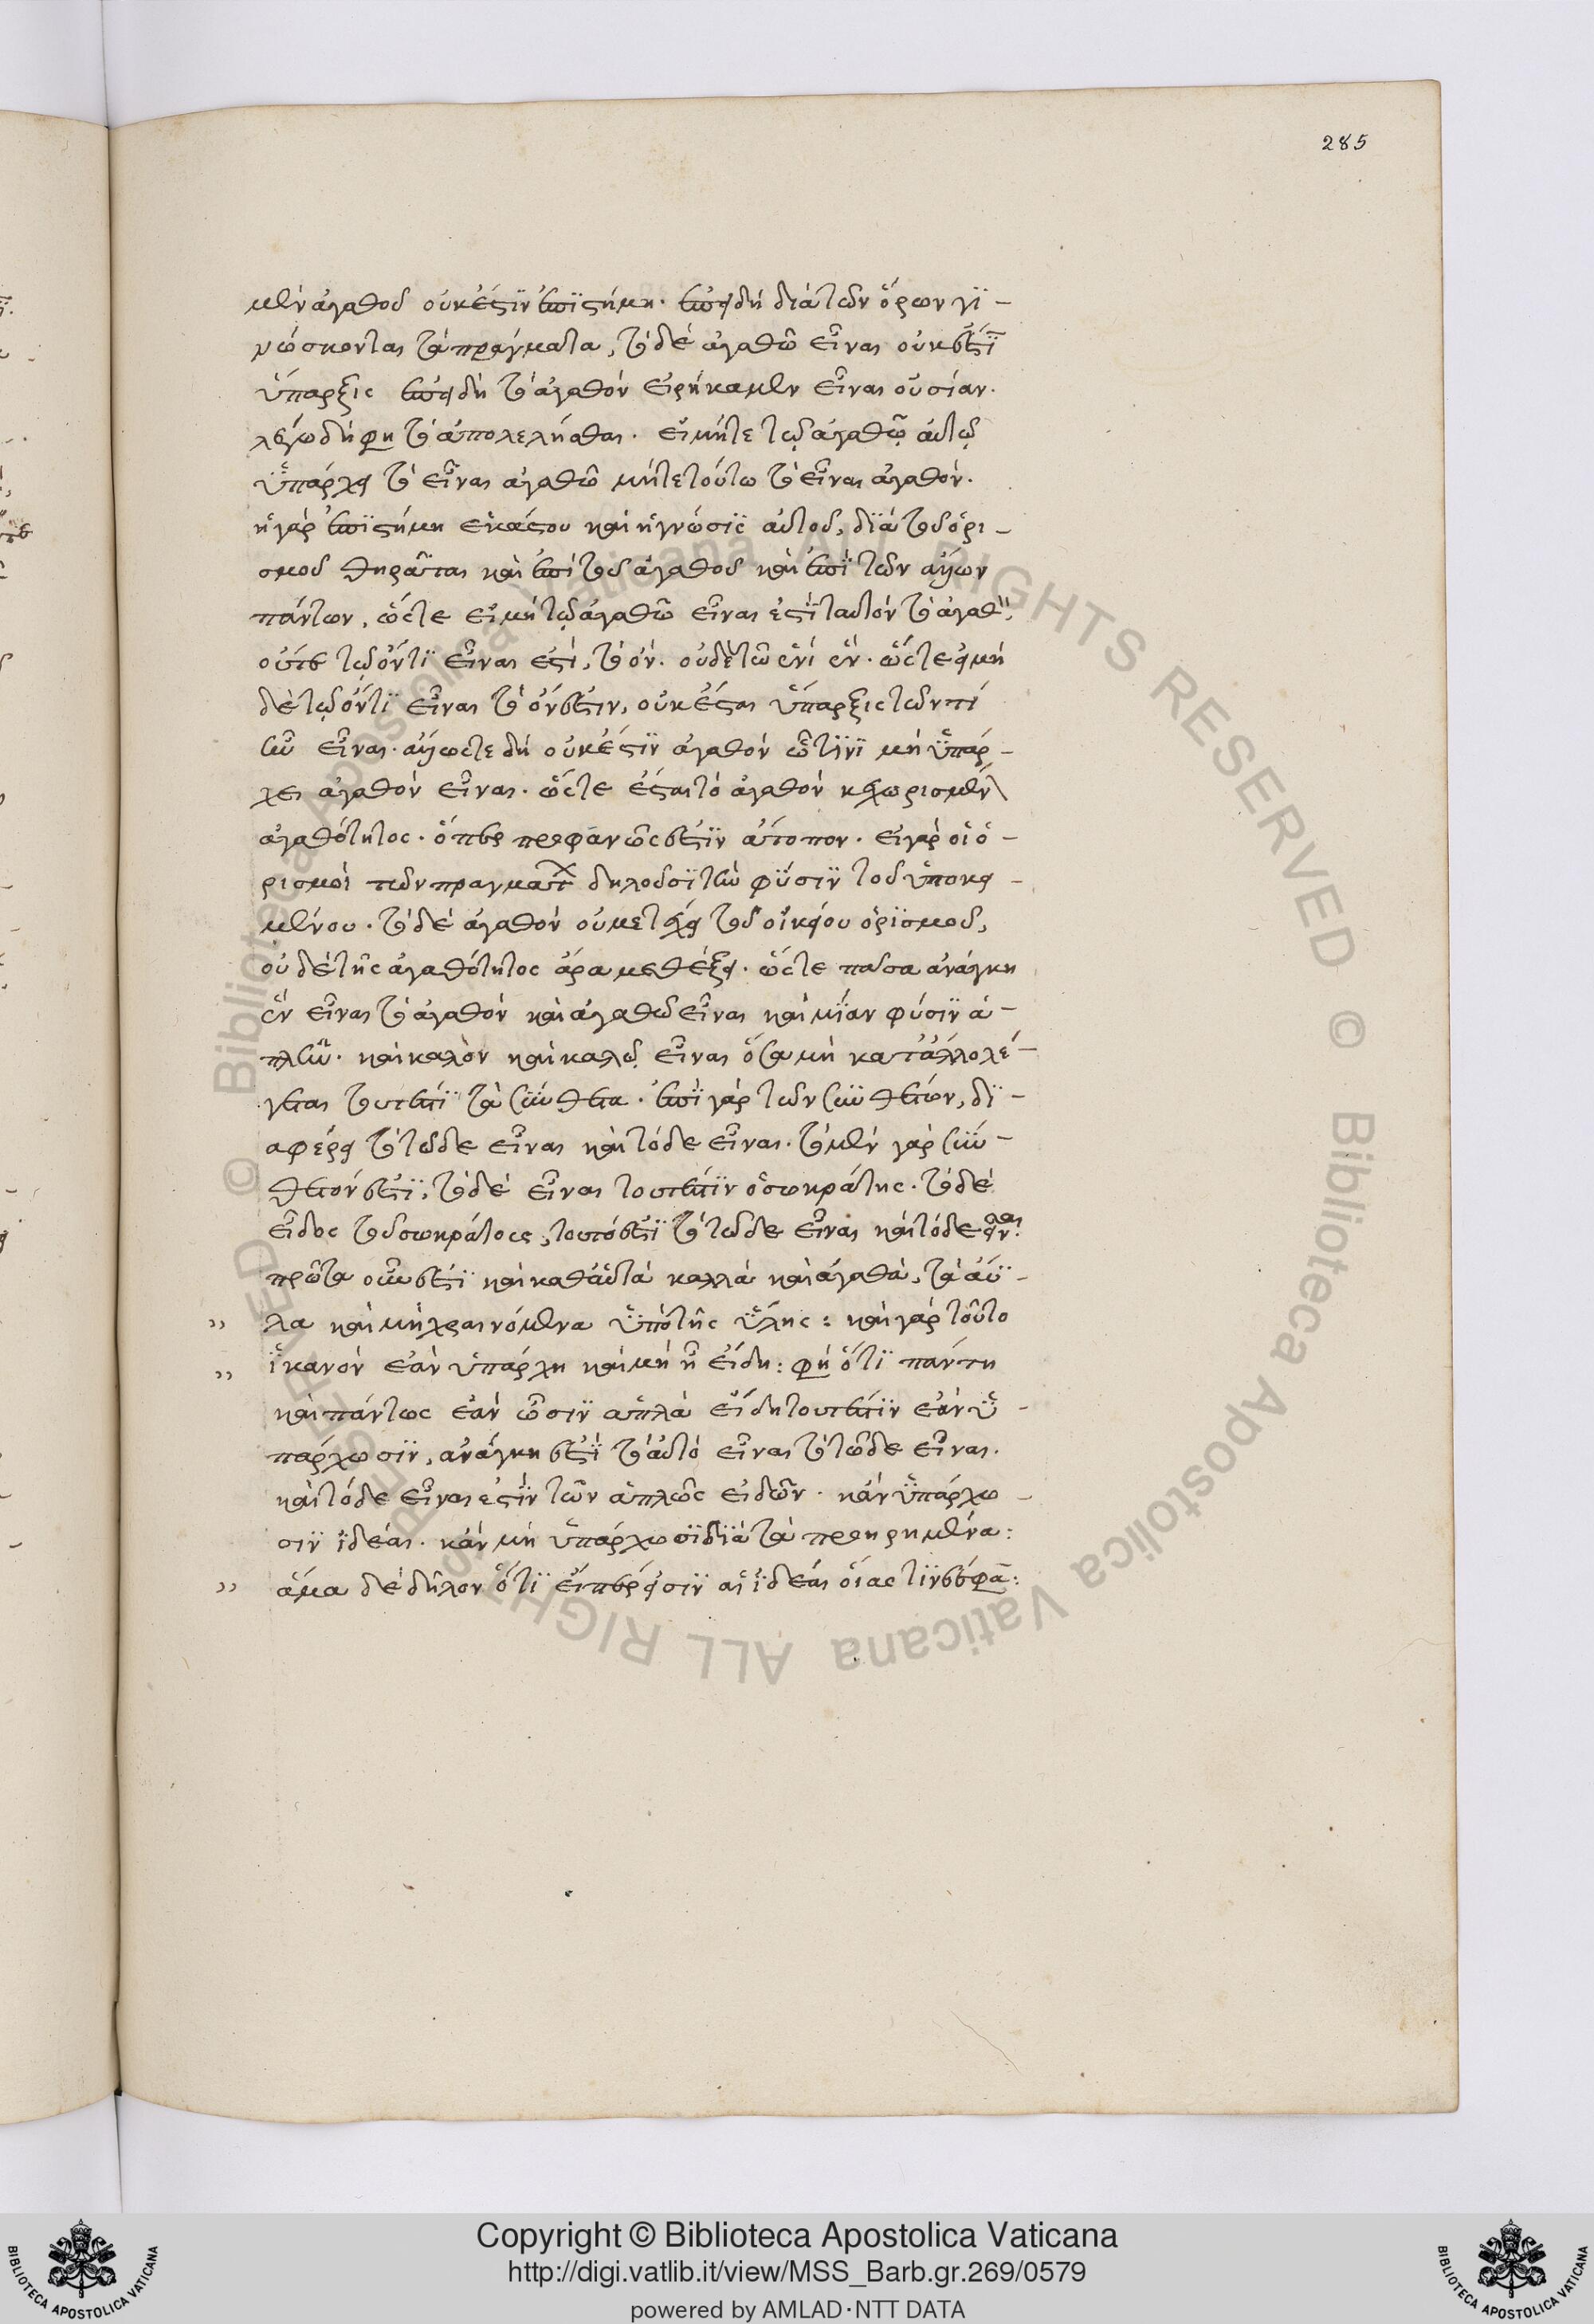 285
μὲν ἀγαθοῦ οὐκ ἔστιν ἐπιστήμη. ἐπειδὴ διὰ τῶν ὅρων γι-
νώσκονται τὰ πράγματα, τὸ δὲ ἀγαθῶ εἶναι οὐκ ἔστι
ὕπαρξις ἐπειδὴ τὸ ἀγαθὸν εἰρήκαμεν εἶναι οὐσίαν.
λέγω δή φη τὸ ἀπολελῆσθαι. εἰ μήτε τῷ ἀγαθῷ αὐτῷ
ὑπάρχει τὸ εἶναι ἀγαθῶ μήτε τούτω τὸ εἶναι ἀγαθόν.
ἡ γὰρ ἐπιστήμη ἑκάστου καὶ ἡ γνῶσις αὐτοῦ, διὰ τοῦ ὁρι-
σμοῦ θηρᾶται καὶ ἐπὶ τοῦ ἀγαθοῦ καὶ ἐπὶ τῶν ἄλλων
πάντων, ὥστε εἰ μὴ τῷ ἀγαθῶ εἶναι ἐστὶ ταυτὸν τὸ ἀγαθὸν,
οὔτε τῷ ὄντι εἶναι ἐστὶ, τὸ ὄν. οὐδὲ τῶ ἑνὶ ἕν. ὥστε εἰ μὴ
δὲ τῷ ὄντι εἶναι τὸ ὄν ἐστιν, οὐκ ἔσται ὕπαρξις τῶν τί
ἦν εἶναι. ἄλλωστε δὴ οὐκ ἔστιν ἀγαθὸν ᾧ τινι μὴ ὑπάρ-
χει ἀγαθὸν εἶναι. ὥστε ἔσται τὸ ἀγαθὸν κεχωρισμένον
ἀγαθότητος. ὅπερ προφανῶς ἐστιν ἄτοπον. εἰ γὰρ οἱ ὁ-
ρισμοὶ τῶν πραγμάτων δηλοῦσι τὴν φύσιν τοῦ ὑποκει-
μένου. τὸ δὲ ἀγαθὸν οὐ μετέχει τοῦ οἰκείου ὁρισμοῦ,
οὐδὲ τῆς ἀγαθότητος ἄρα μεθέξει. ὥστε πᾶσα ἀνάγκη
ἓν εἶναι τὸ ἀγαθὸν καὶ ἀγαθῶ εἶναι καὶ μίαν φύσιν ἁ-
πλῆν. καὶ καλὸν καὶ καλῷ εἶναι ὅσα μὴ κατ' ἄλλο λέ-
γεται τουτέστι τὰ σύνθετα. ἐπὶ γὰρ τῶν συνθέτων, δι-
αφέρει τὸ τῶδε εἶναι καὶ τόδε εἶναι. τὸ μὲν γὰρ σύν-
θετόν ἐστι, τὸ δὲ εἶναι τουτέστιν ὁ σωκράτης. τὸ δὲ
εἶδος τοῦ σωκράτους, τουτέστι τὸ τῶδε εἶναι καὶ τόδε εἶναι.
πρῶτα οὖν ἐστι καὶ καθ' αὑτὰ καλλὰ καὶ ἀγαθὰ, τὰ ἄϋ-
λα καὶ μὴ χραινόμενα ὑπὸ τῆς ὕλης: καὶ γὰρ τοῦτο
ἱκανὸν ἐὰν ὑπάρχη κἂν μὴ ἦ εἴδη: φὴ ὅτι πάντη
καὶ πάντως ἐὰν ὦσιν ἁπλᾶ εἴδη τουτέστιν ἐὰν ὑ-
πάρχωσιν, ἀνάγκη ἐστὶ τὸ αὐτὸ εἶναι τὸ τῶδε εἶναι.
καὶ τόδε εἶναι ἐστὶν τῶν ἁπλῶς εἰδῶν. κἂν ὑπάρχω-
σιν ἰδέαι. κἂν μὴ ὑπάρχωσι διὰ τὰ προειρημένα:
ἅμα δὲ δῆλον ὅτι εἴπερ εἰσὶν αἱ ἰδέαι οἵας τινές φα:
Copyright © Biblioteca Apostolica Vaticana
http://digi.vatlib.it/view/MSS_Barb.gr.269/0579
powered by AMLAD·NTT DATA